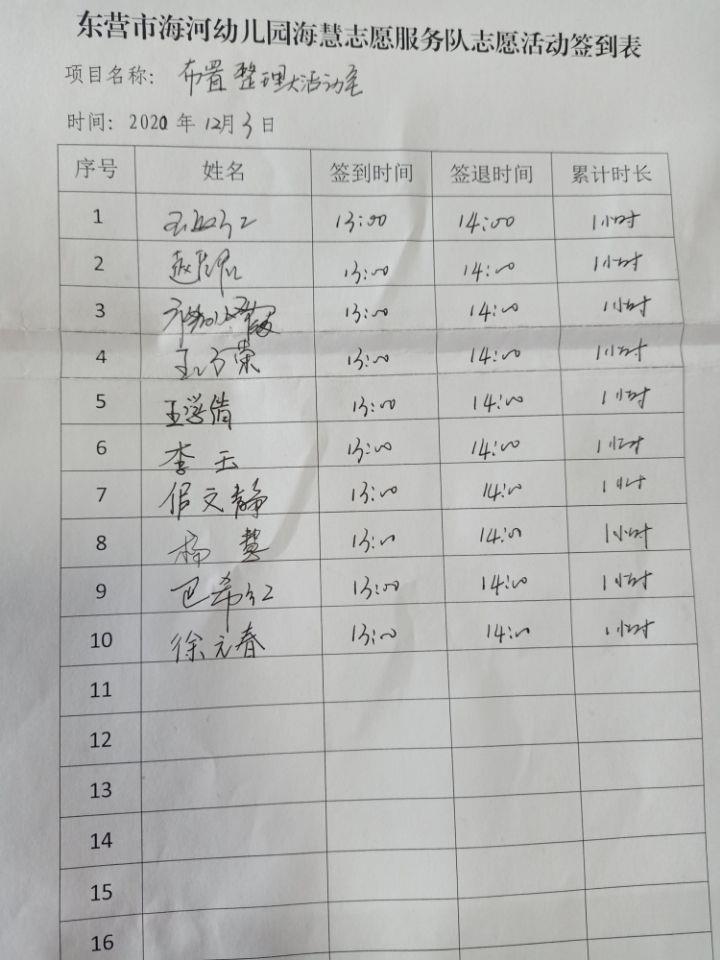 东营市海河幼儿园海慧志愿服务队志愿活动签到表
项目名称：布置整理大活动室
时间：2020年12月3日
序号 姓名 签到时间 签退时间 累计时长
1 13:00 14:00 1小时
2 13:00 14:00 1小时
3 13:00 14:00 1小时
4 王 荣 13:00 14:00 1小时
5 王学倩 13:00 14:00 1小时
6 李玉 13:00 14:00 1小时
7 侯文静 13:00 14:00 1小时
8 杨慧 13:00 14:00 1小时
9 巴希红 13:00 14:00 1小时
10 徐元春 13:00 14:00 1小时
11
12
13
14
15
16